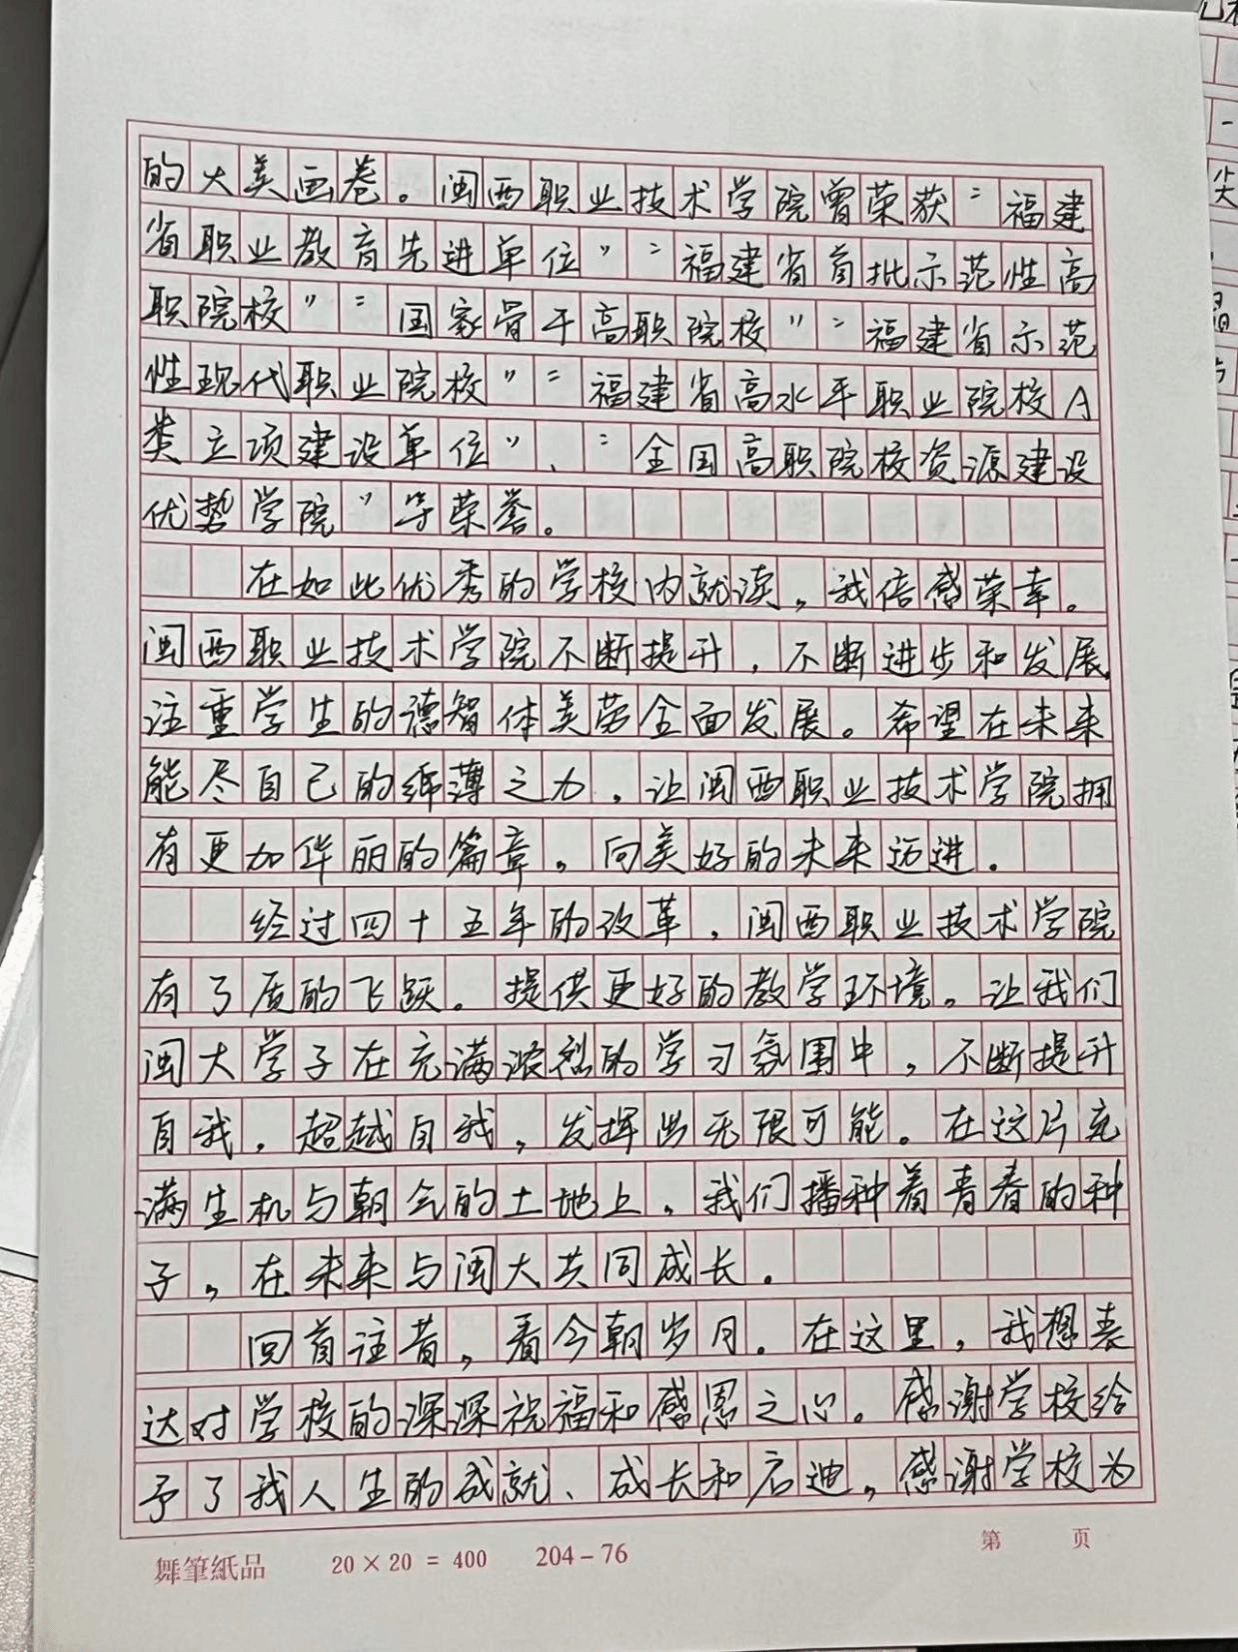 的大美画卷。闽西职业技术学院曾荣获“福建
省职业教育先进单位”“福建省首批示范性高
职院校”“国家骨干高职院校”“福建省示范
性现代职业院校”“福建省高水平职业院校A
类立项建设单位”、“全国高职院校资源建设
优势学院”等荣誉。
在如此优秀的学校内就读，我倍感荣幸。
闽西职业技术学院不断提升，不断进步和发展，
注重学生的德智体美劳全面发展。希望在未来
能尽自己的绵薄之力，让闽西职业技术学院拥
有更加华丽的篇章。向美好的未来迈进。
经过四十五年的改革，闽西职业技术学院
有了质的飞跃。提供更好的教学环境。让我们
闽大学子在充满浓烈的学习氛围中，不断提升
自我，超越自我，发挥出无限可能。在这片充
满生机与朝气的土地上，我们播种着青春的种
子，在未来与闽大共同成长。
回首往昔，看今朝岁月。在这里，我想表
达对学校的深深祝福和感恩之心。感谢学校给
予了我人生的成就、成长和启迪，感谢学校为
舞筆紙品 20×20=400 204-76 第 页